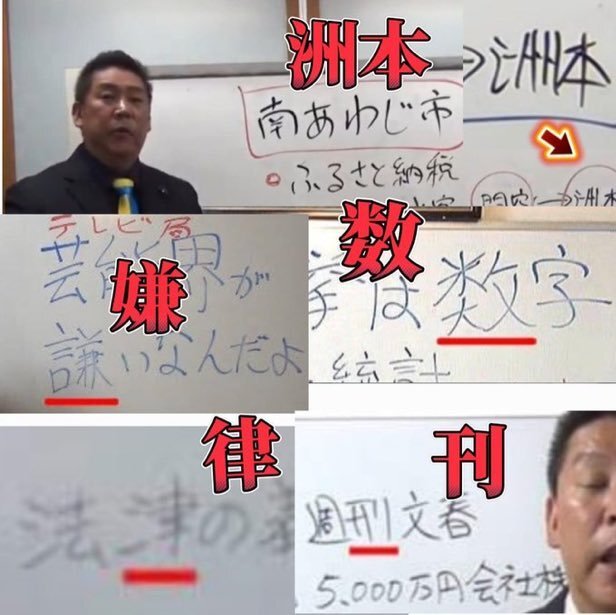 洲本
南あわじ市
ふるさと納税
→洲本
→洲本
テレビ局
芸能界が
嫌
謙いなんだよ
数
は数字
統計
律
法津の
刊
週刑文春
5.000万円会社株